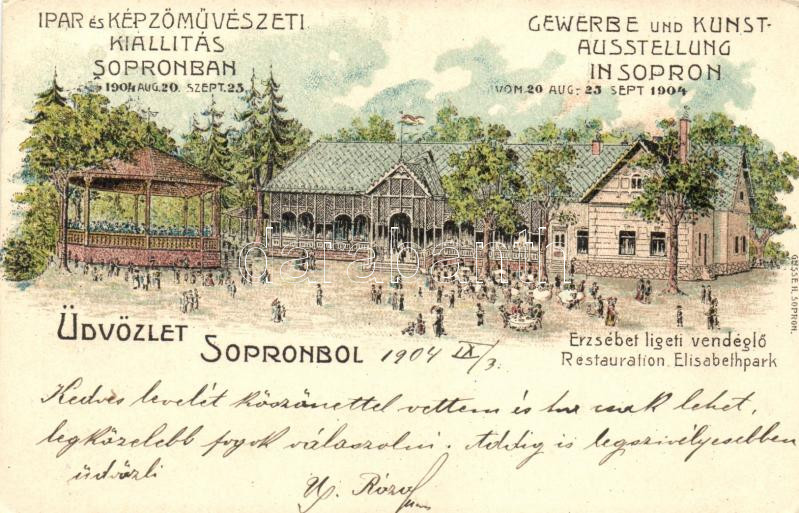 IPAR és KÉPZŐMŰVÉSZETI
KIALLITÁS
SOPRONBAN
1904 AUG. 20. SZEPT. 23
GEWERBE UND KUNST-
AUSSTELLUNG
IN SOPRON
VOM 20 AUG.- 23 SEPT 1904
darabanth
GRESSE H. SOPRON.
ÜDVÖZLET SOPRONBOL 1904 IX/3.
Erzsébet ligeti vendéglő
Restauration Elisabethpark
Kedves levelét köszönettel vettem és ha csak lehet,
legközelebb fogok válaszolni. Addig is legszivélyesebben
üdvözli